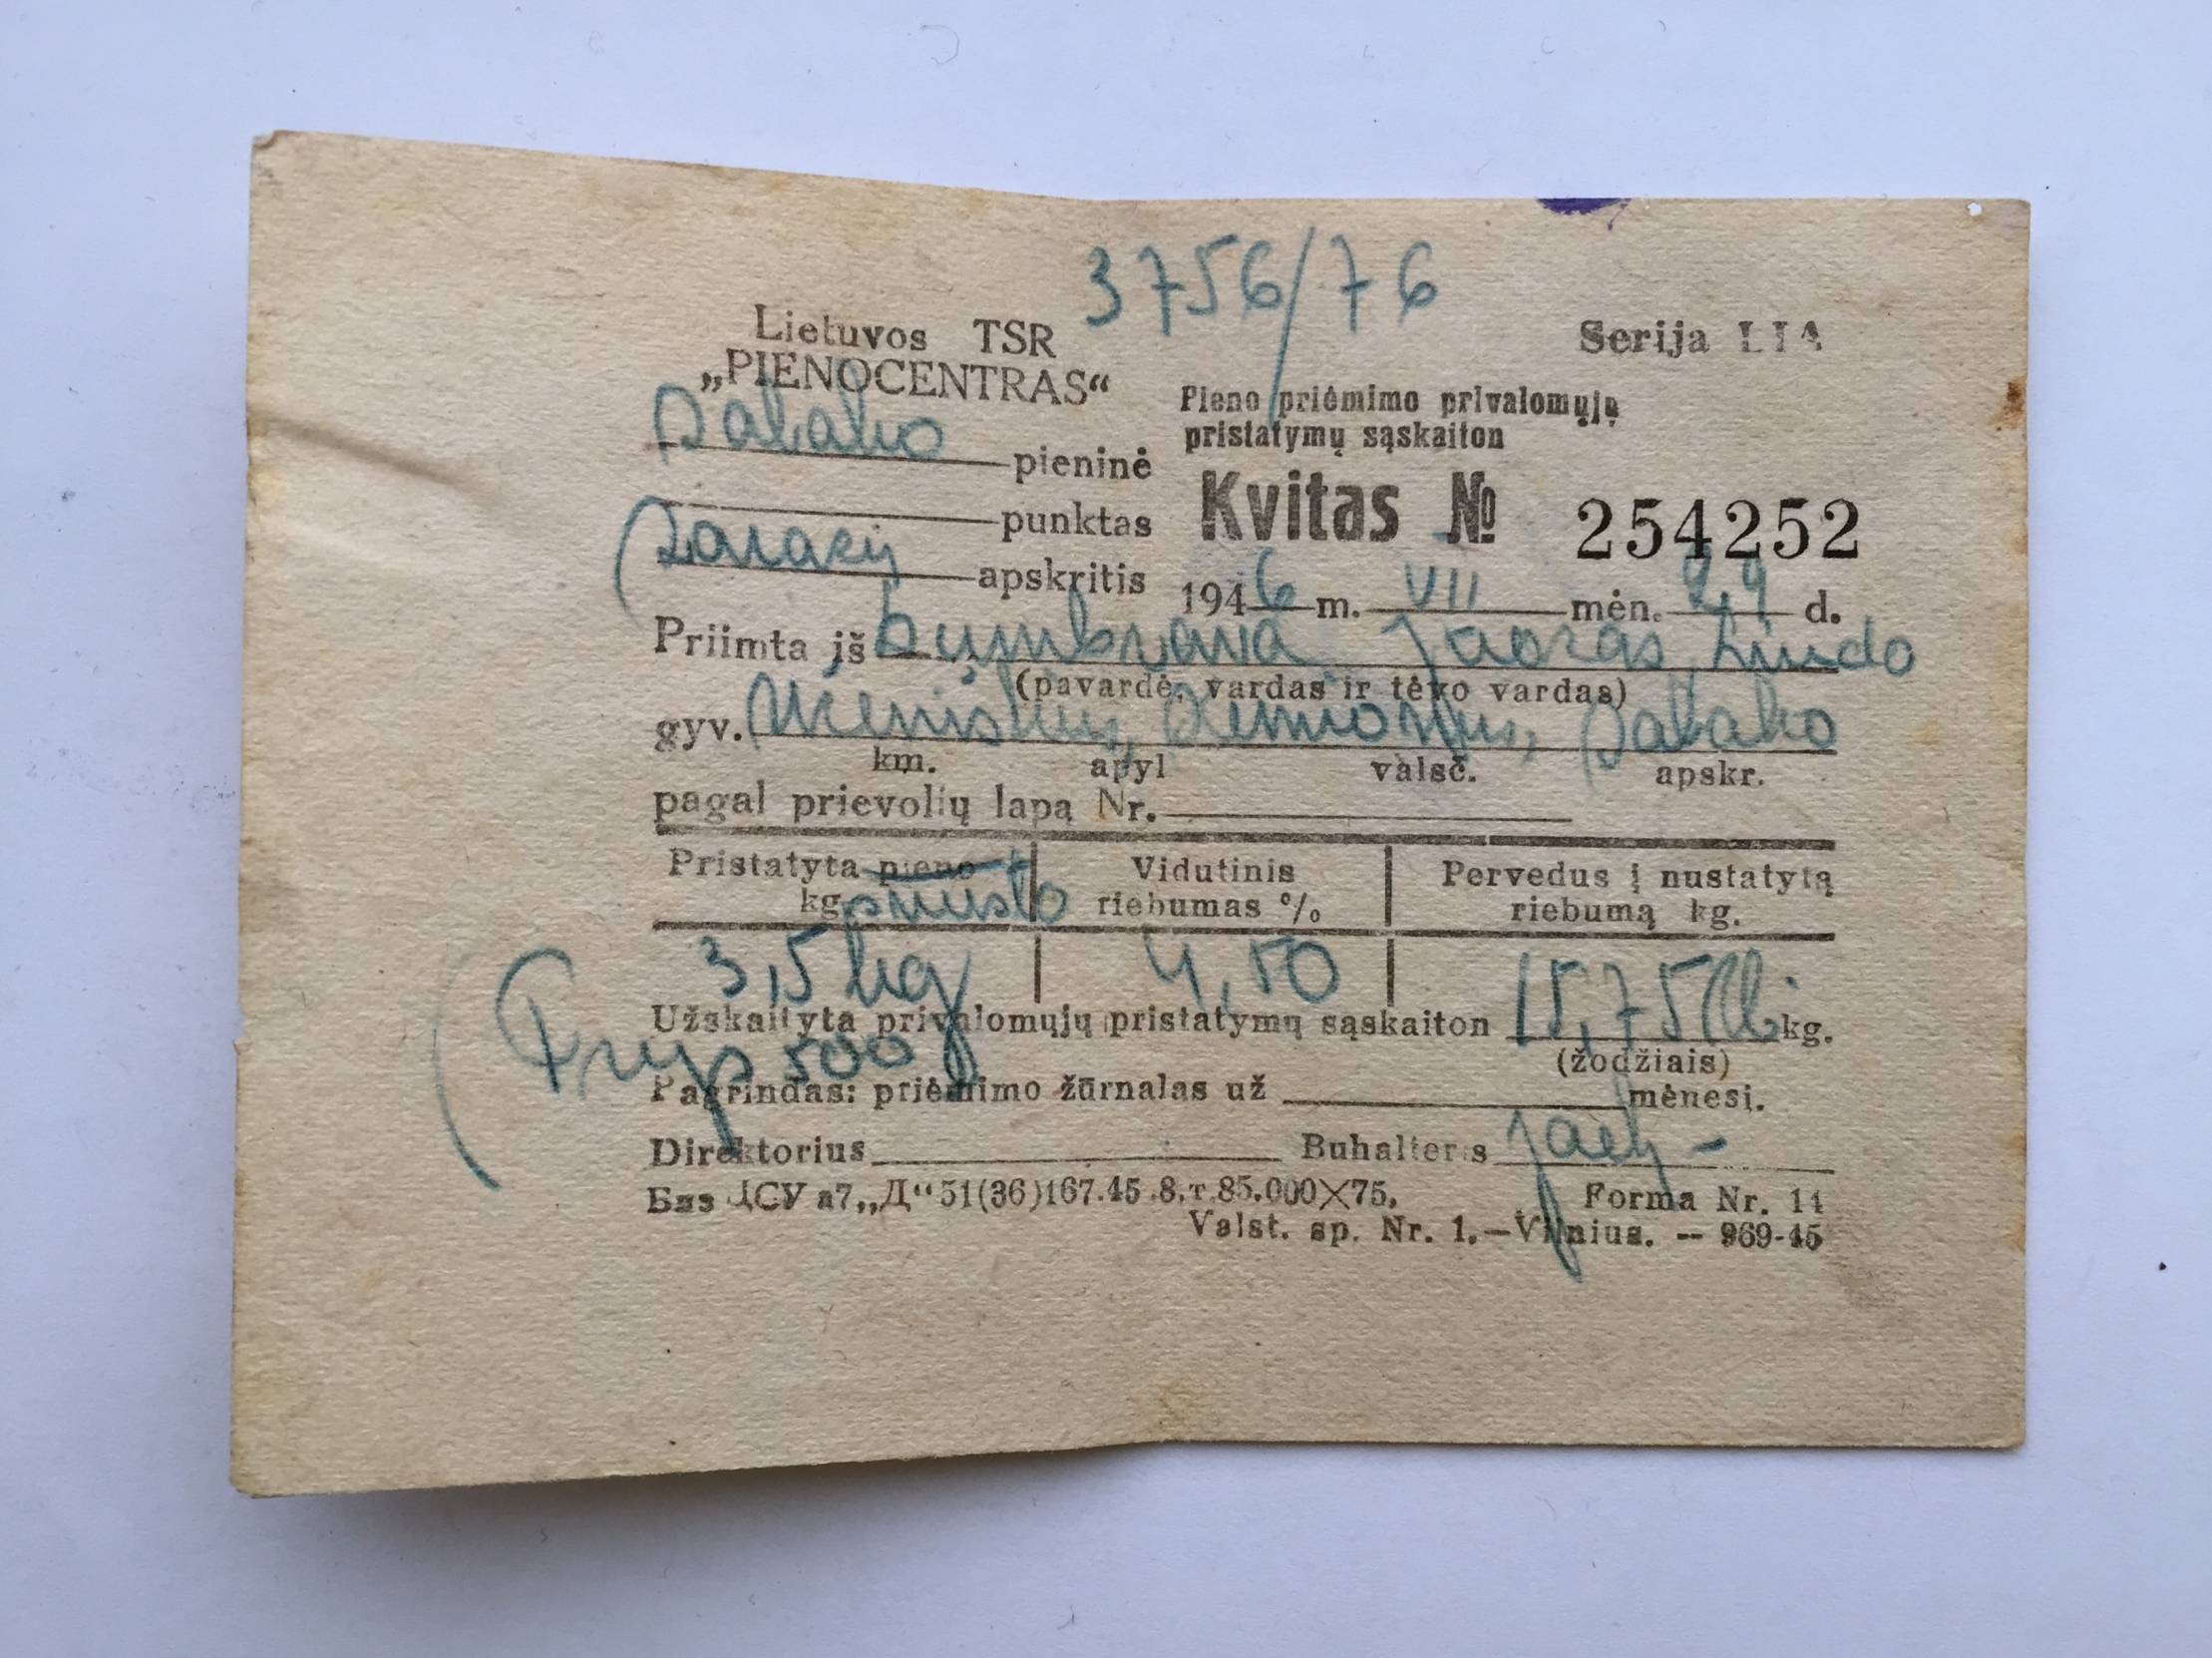 3756/76
Lietuvos TSR
„PIENOCENTRAS“
Serija LIA
Pieno priėmimo privalomųjų
pristatymų sąskaiton
Salako pieninė
punktas
Kvitas № 254252
Zarasų apskritis
1946 m. VII mėn. 29 d.
Priimta iš
(pavardė, vardas ir tėvo vardas)
gyv. Salako
km. apyl valsč. apskr.
pagal prievolių lapą Nr.
Pristatyta pieno kg. sviesto
Vidutinis riebumas %
Pervedus į nustatytą riebumą kg.
3,5 kg 4,50
Užskaityta privalomųjų pristatymų sąskaiton 15,75 kg.
(žodžiais)
500
Pagrindas: priėmimo žūrnalas už mėnesį.
Direktorius Buhalteris
Баз ЦСУ а7„Д“ 51(36)167.45.8.т.85.000X75.
Forma Nr. 11
Valst. sp. Nr. 1.—Vilnius. -- 969-45